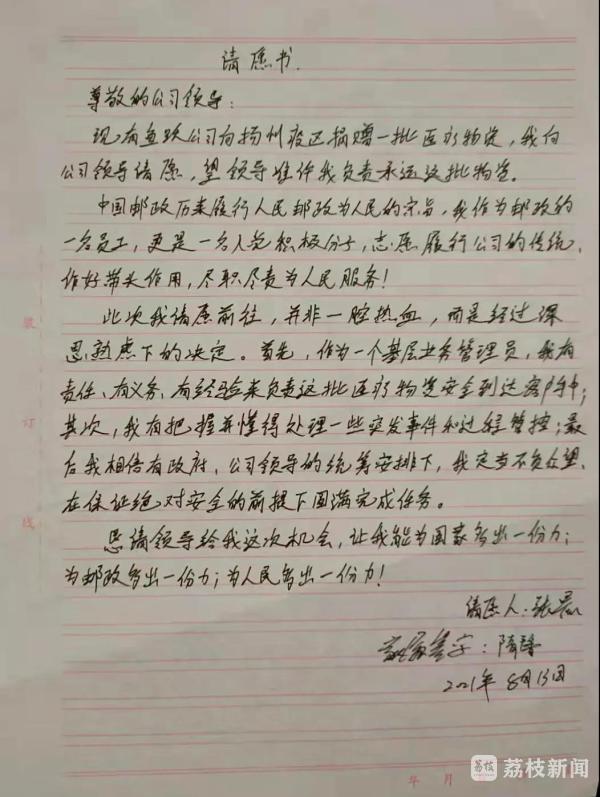 请愿书
尊敬的公司领导:
现有鱼跃公司向扬州疫区捐赠一批医疗物资,我向
公司领导请愿,望领导准许我负责承运这批物资。
中国邮政历来履行人民邮政为人民的宗旨,我作为邮政的
一名员工,更是一名入党积极分子,志愿履行公司的传统、
作好带头作用,尽职尽责为人民服务!
此次我请愿前往,并非一腔热血,而是经过深
思熟虑下的决定。首先,作为一个基层业务管理员,我有
责任、有义务、有经验来负责这批医疗物资安全到达客户手中;
其次,我有把握并懂得处理一些突发事件和过程管控;最
后我相信有政府、公司领导的统筹安排下,我定当不负众望、
在保证绝对安全的前提下圆满完成任务。
恳请领导给我这次机会,让我能为国家多出一份力;
为邮政多出一份力;为人民多出一份力!
请愿人:张
家属签字:隋
2021年8月13日
装
订
线
年 月
荔枝 荔枝新闻